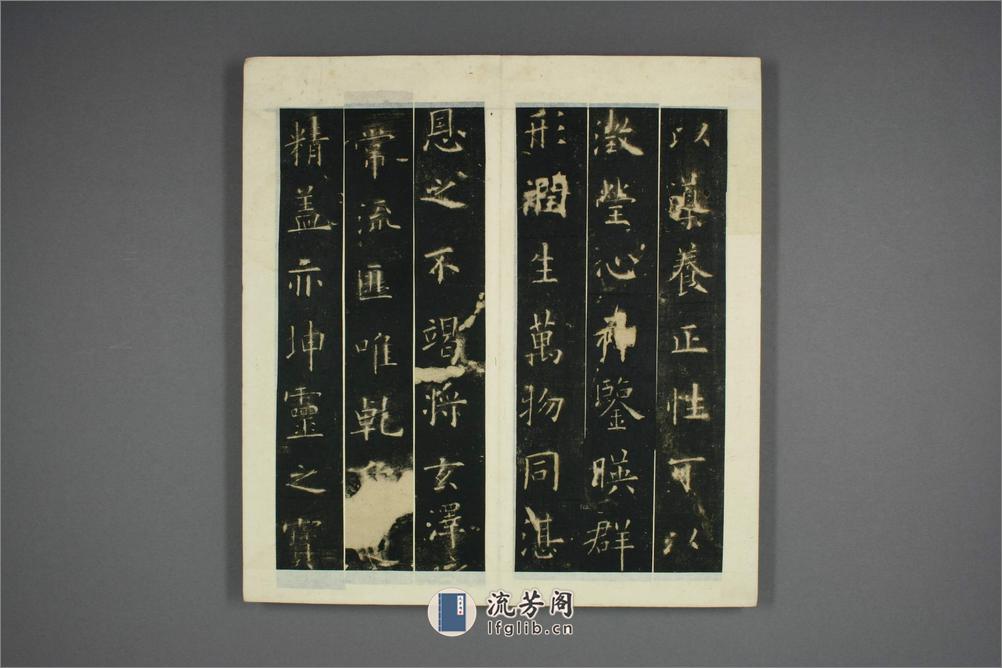 以導養正性可以
澂瑩心神鑒暎群
形潤生萬物同湛
恩之不竭將玄澤之
常流匪唯乾
精盖亦坤靈之寶
流芳阁
lfglib.cn